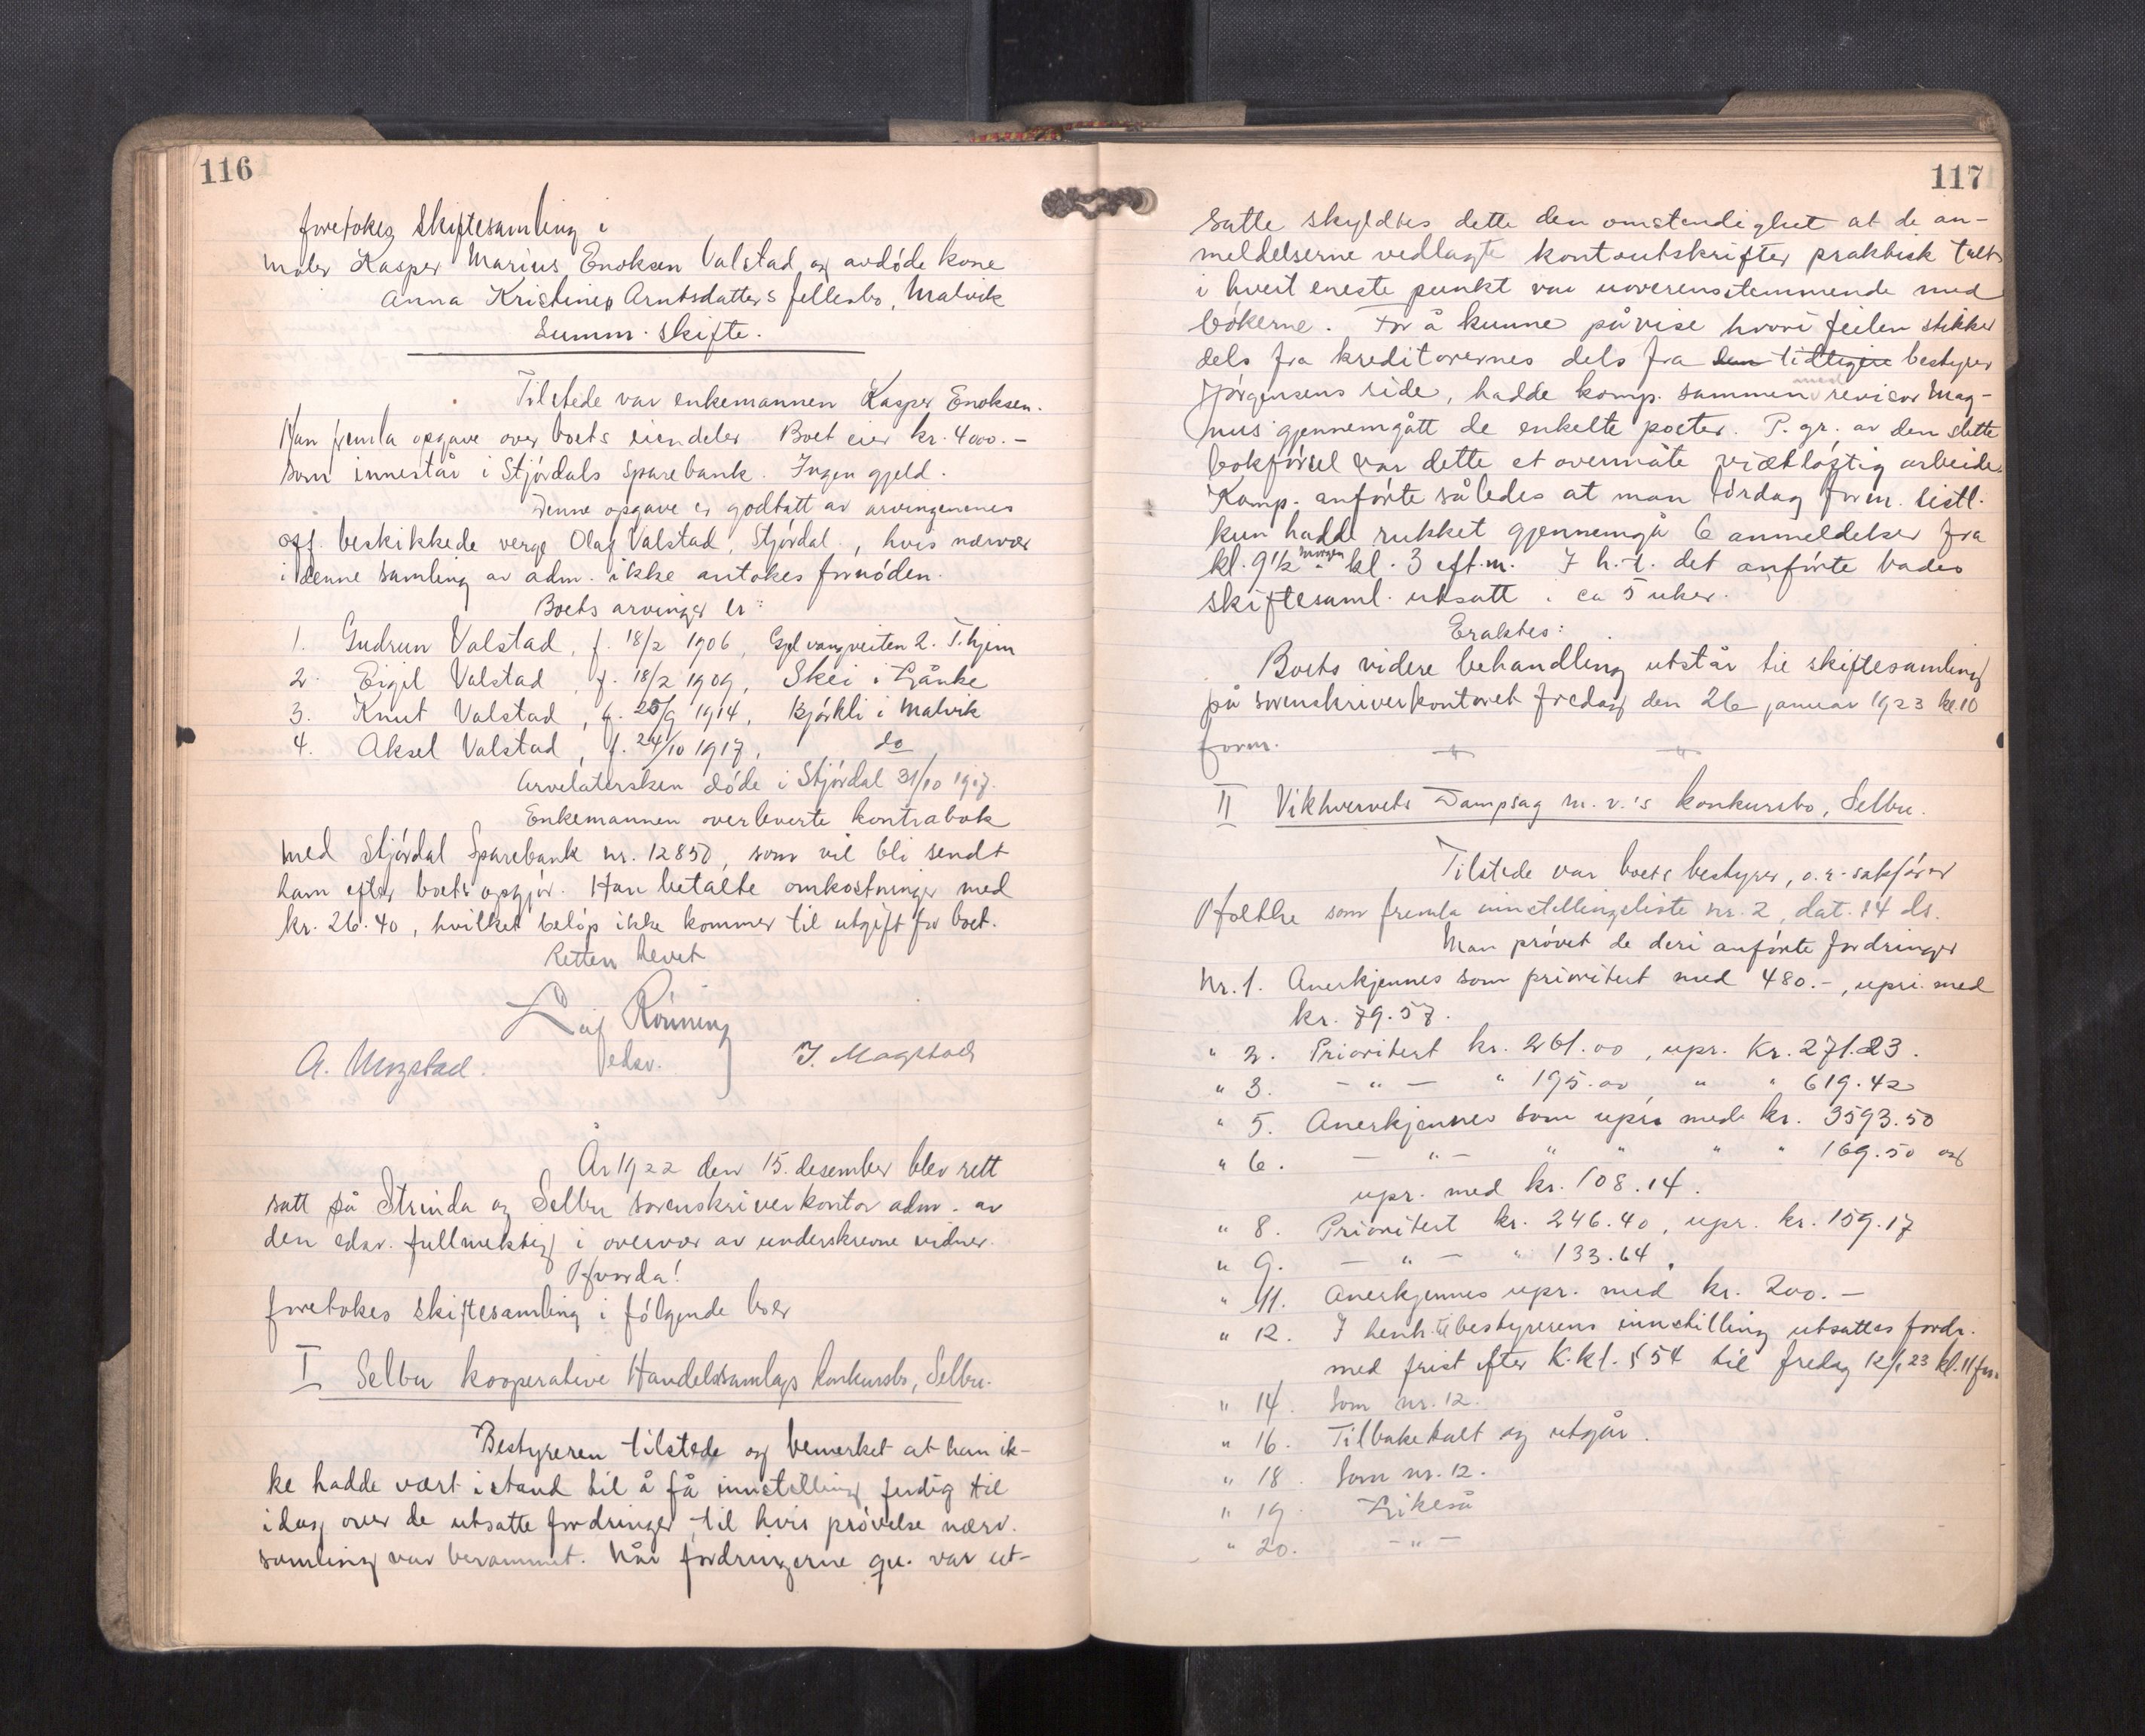 116
foretokes skiftesamling i
maler Kasper Marius Enoksen Valstad og avdöde kone
Anna Kristine Arntsdatters fellesbo, Malvik
Summ. skifte.
Tilstede var enkemannen Kasper Enoksen.
Han fremla opgave over boets eiendeler Boet eier kr. 4000.-
som innestår i Stjördals Sparebank. Ingen gjeld.
Denne opgave er godtatt av arvingenenes
off. beskikkede verge Olaf Valstad, Stjördal, hvis nærvær
i denne samling av adm. ikke antokes fornöden.
Boets arvinger er:
1. Gudrun Valstad, f. 18/2 1906, vangveiten 2. T.hjem
2. Eigil Valstad, f. 18/2 1909, Skei i Lånke
3. Knut Valstad, f. 25/9 1914, Bjørkli i Malvik
4. Aksel Valstad, f. 24/10 1917, do
Arvelatersken döde i Stjördal 31/10 1917.
Enkemannen overleverte kontrabok
med Stjördal Sparebank nr. 12850, som vil bli sendt
ham efter boets opgjör. Han betalte omkostninger med
kr. 26.40, hvilket belöp ikke kommer til utgift for boet.
Retten hevet
Leif Rönning
edsv.
A. Mogstad. J. Mogstad
År 1922 den 15. desember blev rett
satt på Strinda og Selbu sorenskriverkontor adm. av
den edsv. fullmektig i overvær av underskrevne vidner.
Hvorda!
foretokes skiftesamling i fölgende boer
I Selbu kooperative Handelssamlags konkursbo, Selbu.
Bestyreren tilstede og bemerket at han ik-
ke hadde vært istand til å få innstilling ferdig til
idag over de utsatte fordringer, til hvis prövelse nærv.
samling var berammet. Når fordringerne qu. var ut-
117
satte skyldtes dette den omstendighet at de an-
meldelserne vedlagte kontoutskrifter praktisk talt
i hvert eneste punkt var uoverensstemmende med
bökerne. For å kunne påvise hvori feilen stikker
dels fra kreditorernes dels fra den tidligere bestyrer
Jörgensens side, hadde komp. sammen med revisor Mag-
nus gjennemgått de enkelte poster. P. gr. av den slette
bokförsel var dette et overmåte vidtlöftig arbeide.
Komp. anförte således at man lördag form. sistl.
kun hadde rukket gjennemgå 6 anmeldelser fra
kl. 9½ morgen - kl. 3 eft.m. I h.t. det anförte bades
skiftesaml. utsatt i ca 5 uker.
Eraktes:
Boets videre behandling utstår til skiftesamling
på sorenskriverkontoret fredag den 26 januar 1923 kl. 10
form.
II Vikhvervets Dampsag m. v.'s konkursbo, Selbu.
Tilstede var boets bestyrer, o.r. sakförer
Holthe som fremla innstillingsliste nr. 2, dat. 14 ds.
Man prövet de deri anförte fordringer
Nr. 1. Anerkjennes som prioritert med 480.-, upri. med
kr. 79.57.
" 2. Prioritert kr. 261.00, upr. kr. 271.23.
" 3. - " - " 195.00 " " 619.42
" 5. Anerkjennes som upri med kr. 3593.50
" 6. - " - " " " " 169.50 og
upr. med kr. 108.14.
" 8. Prioritert kr. 246.40, upr. kr. 159.17
" 9. - " - " 133.64.
" 11. Anerkjennes upr. med kr. 200.-
" 12. I henh. til bestyrerens innstilling utsattes fordr.
med frist efter K.kl. § 54 til fredag 12/1 23 kl. 11 fm.
" 14. Som nr. 12.
" 16. Tilbakekalt og utgår.
" 18. Som nr. 12.
" 19. Likeså
" 20. - " -